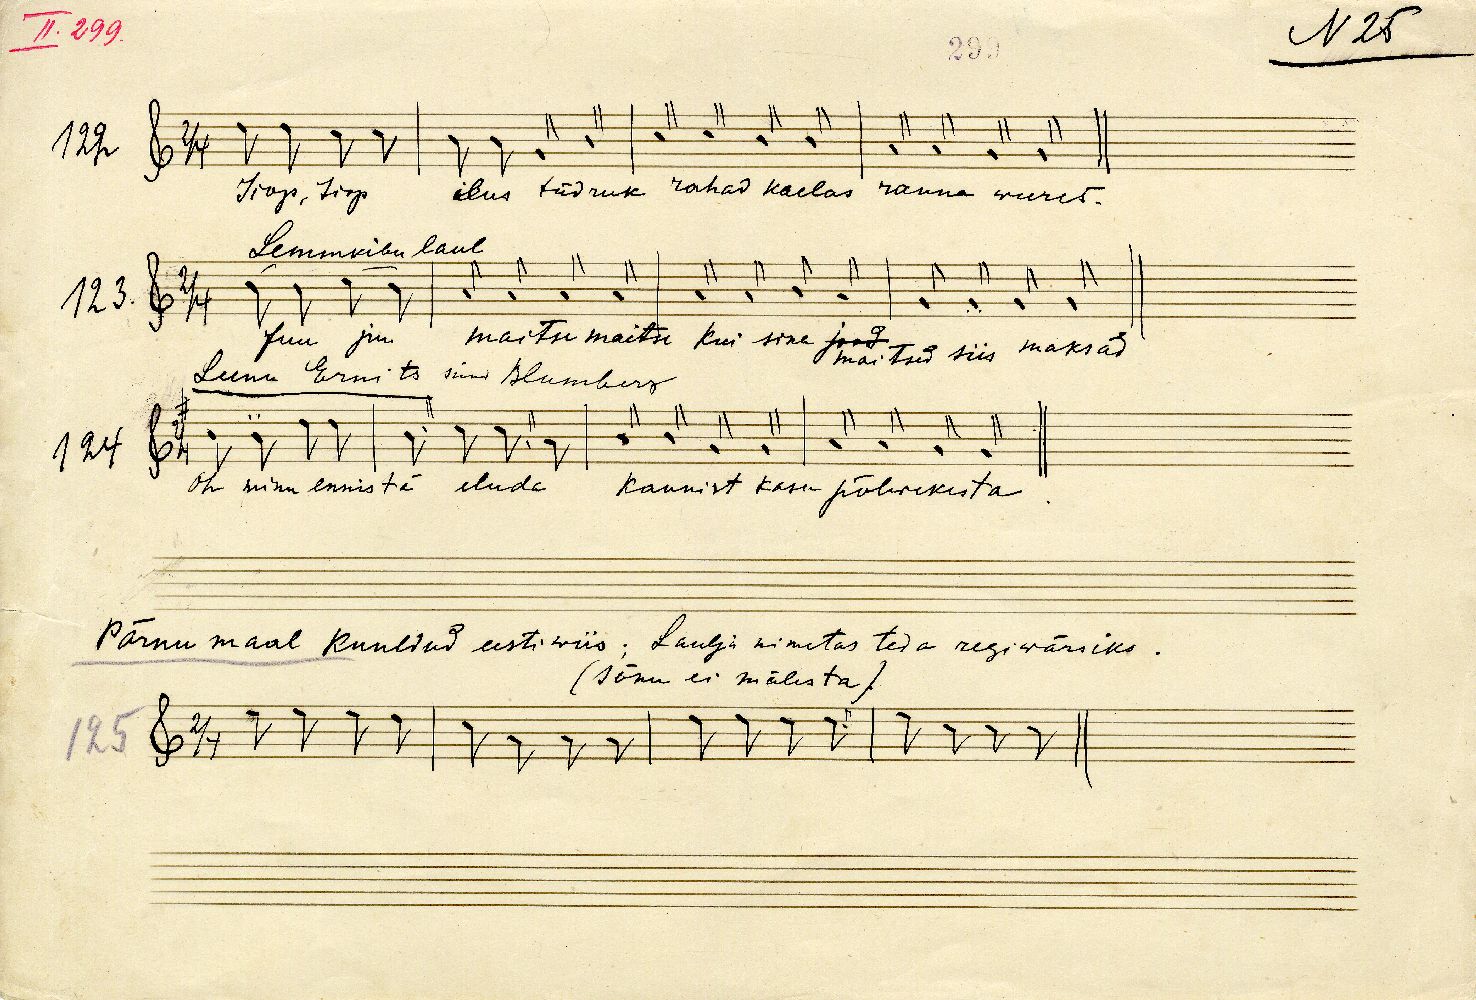 II. 299.
299
N 25
122
2/4
Siop, siop ilus tüdruk rahad kaelas ranna weeres.
Lemmkibu laul
123.
2/4
Juu juu maitse maitse kui sina jood maitsed siis maksad
Leenu Ernits sünd Blumberg
124
2/4
Oh minu ennistä eluda kaunist kasu põlwekesta.
Pärnu maal kuuldud eesti wiis; Laulja nimetas teda regiwärsiks.
(Sõnu ei mälesta)
125
2/4